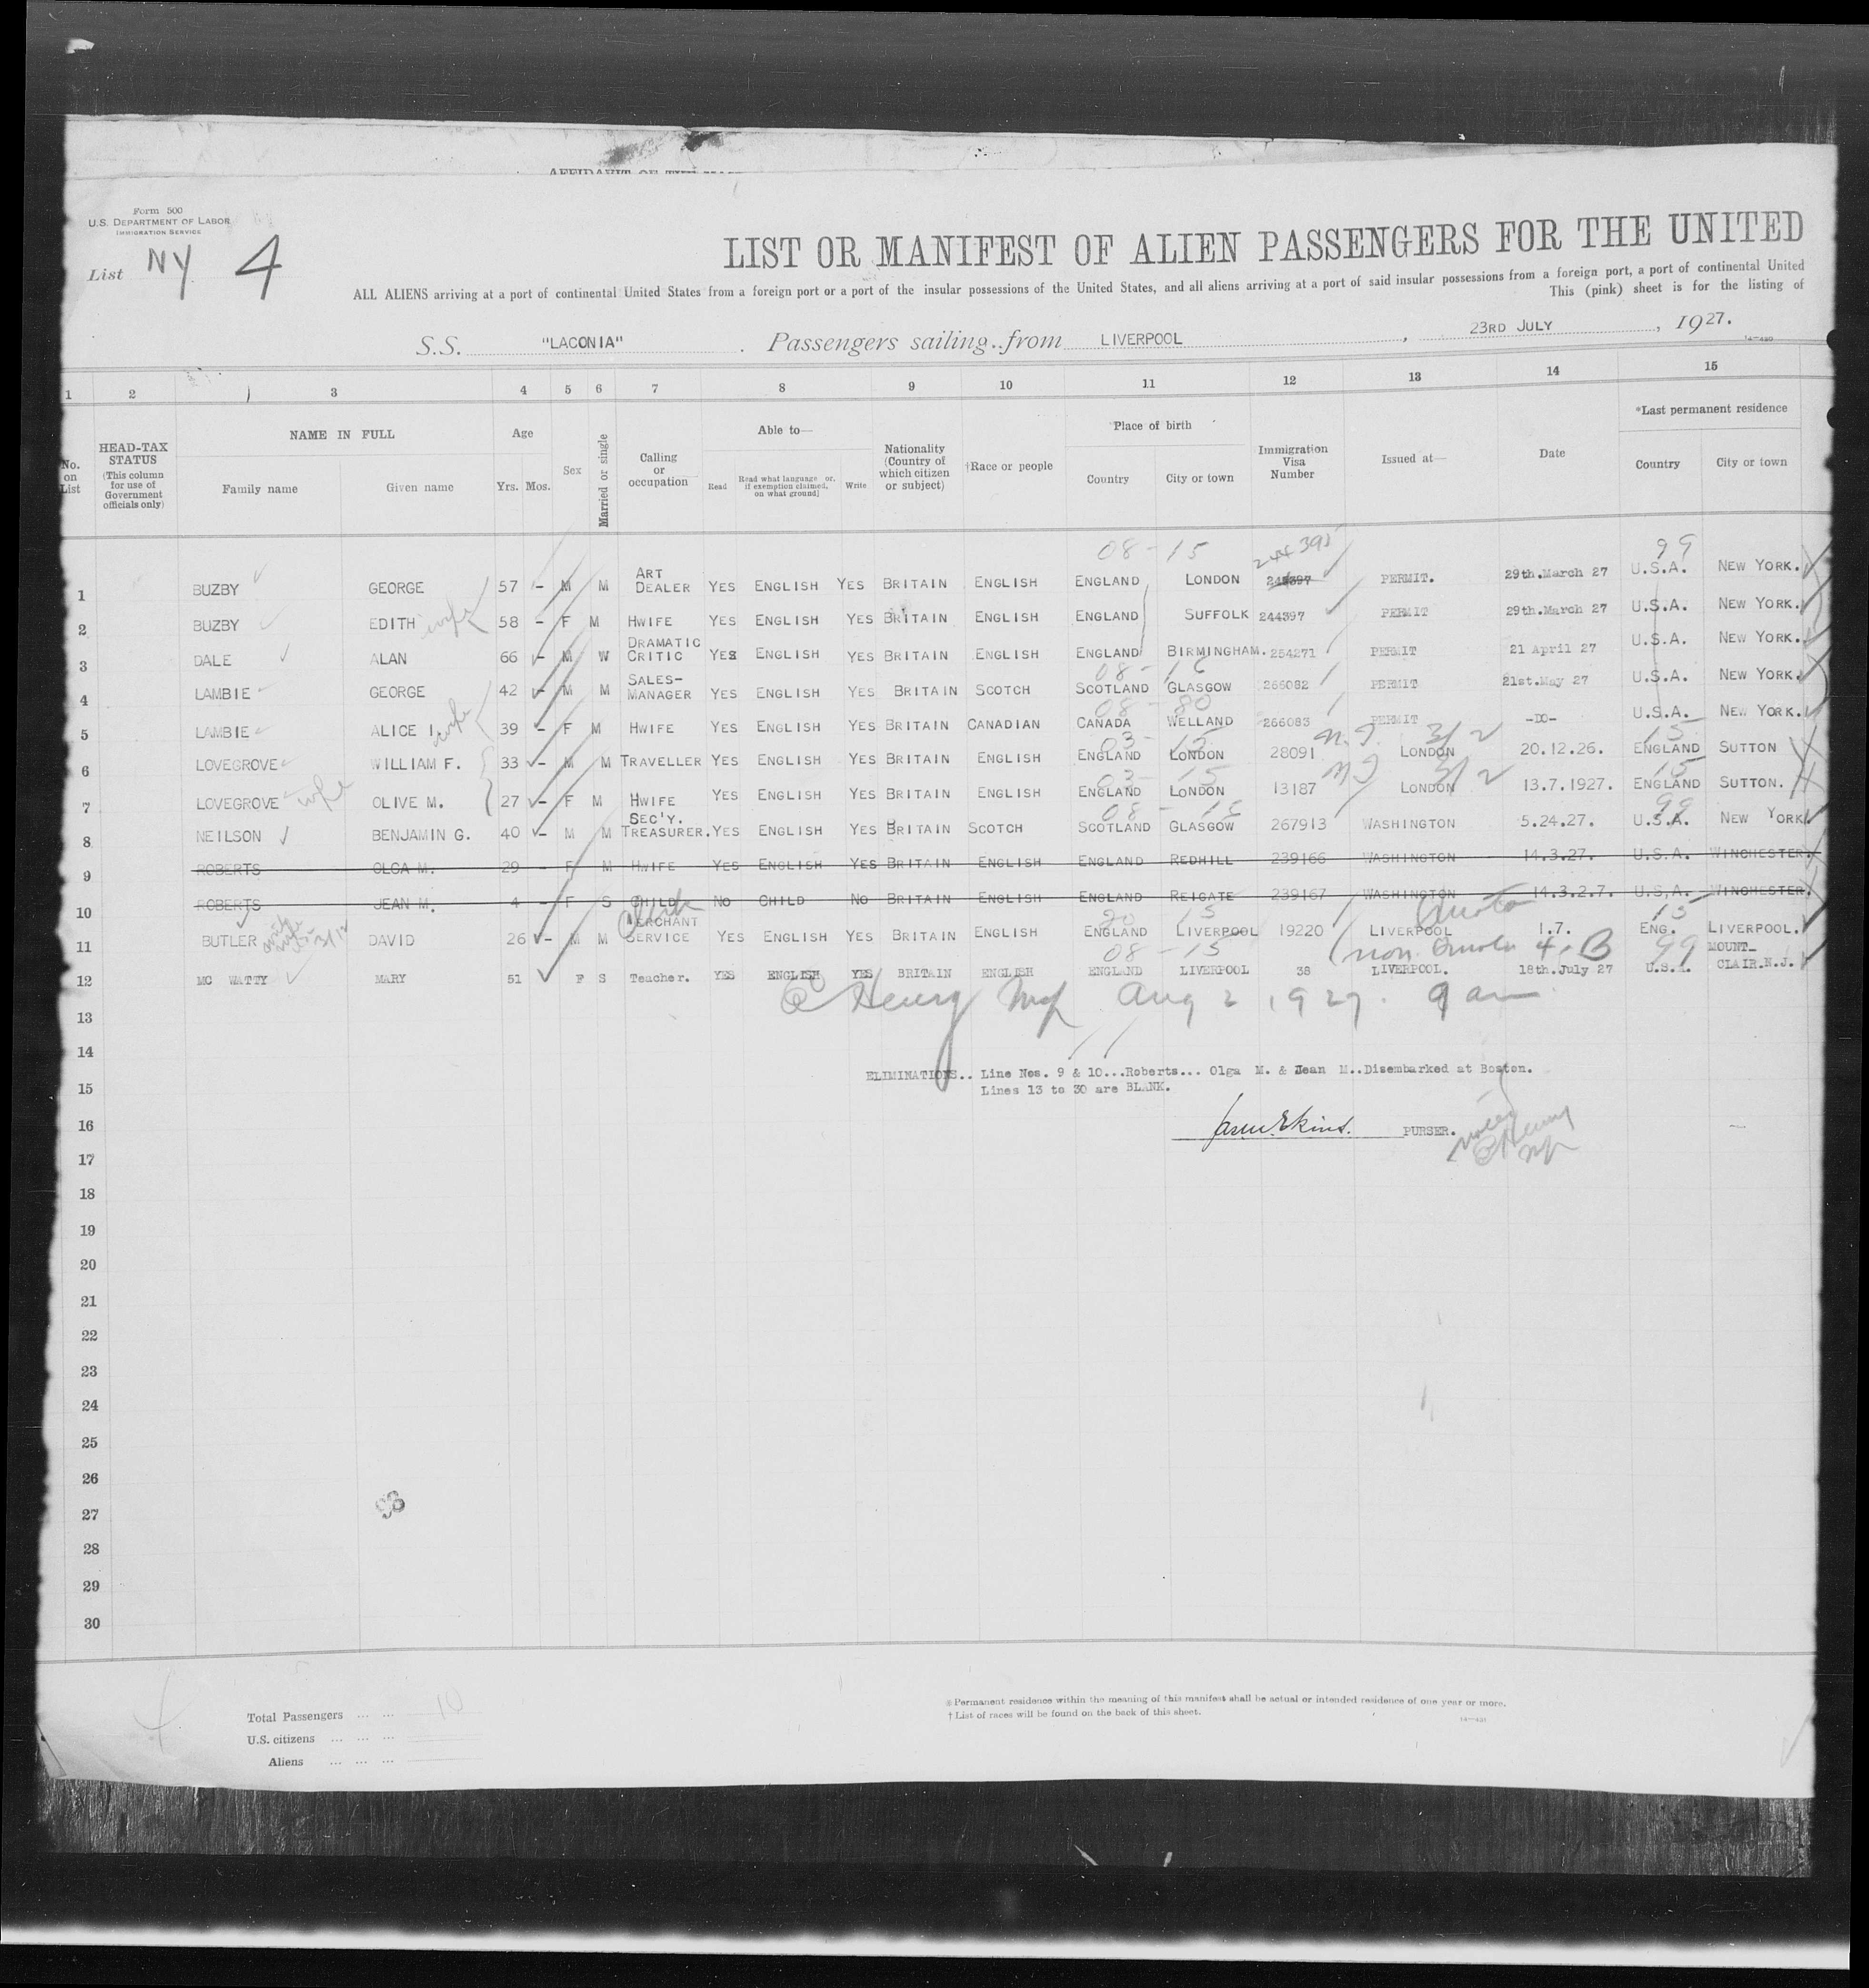 AFFIDAVIT OF THE
Form 500
U.S. DEPARTMENT OF LABOR
IMMIGRATION SERVICE
List NY 4
LIST OR MANIFEST OF ALIEN PASSENGERS FOR THE UNITED
ALL ALIENS arriving at a port of continental United States from a foreign port or a port of the insular possessions of the United States, and all aliens arriving at a port of said insular possessions from a foreign port, a port of continental United
This (pink) sheet is for the listing of
S.S. "LACONIA" . Passengers sailing from LIVERPOOL , 23RD JULY , 1927.
1 2 3 4 5 6 7 8 9 10 11 12 13 14 15
No. on List
HEAD-TAX STATUS (This column for use of Government officials only)
NAME IN FULL
Family name Given name
Age
Yrs. Mos.
Sex
Married or single
Calling or occupation
Able to—
Read Read what language or, if exemption claimed, on what ground] Write
Nationality (Country of which citizen or subject)
†Race or people
Place of birth
Country City or town
Immigration Visa Number
Issued at—
Date
*Last permanent residence
Country City or town
08-15 244395 99
1 BUZBY GEORGE 57 - M M ART DEALER YES ENGLISH YES BRITAIN ENGLISH ENGLAND LONDON PERMIT. 29th.March 27 U.S.A. NEW YORK.
2 BUZBY EDITH wife 58 - F M HWIFE YES ENGLISH YES BRITAIN ENGLISH ENGLAND SUFFOLK 244397 PERMIT 29th.March 27 U.S.A. NEW YORK.
3 DALE ALAN 66 - M W DRAMATIC CRITIC YES ENGLISH YES BRITAIN ENGLISH ENGLAND BIRMINGHAM. 254271 PERMIT 21 April 27 U.S.A. NEW YORK.
08-16
4 LAMBIE GEORGE 42 - M M SALES-MANAGER YES ENGLISH YES BRITAIN SCOTCH SCOTLAND GLASGOW 266082 PERMIT 21st.May 27 U.S.A. NEW YORK.
08-80
5 LAMBIE ALICE I. wife 39 - F M HWIFE YES ENGLISH YES BRITAIN CANADIAN CANADA WELLAND 266083 PERMIT -DO- U.S.A. NEW YORK.
03-15 3/2 15
6 LOVEGROVE WILLIAM F. 33 - M M TRAVELLER YES ENGLISH YES BRITAIN ENGLISH ENGLAND LONDON 28091 LONDON 20.12.26. ENGLAND SUTTON
03-15 3/2 15
7 LOVEGROVE wife OLIVE M. 27 - F M HWIFE YES ENGLISH YES BRITAIN ENGLISH ENGLAND LONDON 13187 LONDON 13.7.1927. ENGLAND SUTTON.
08-16 99
8 NEILSON BENJAMIN G. 40 - M M SEC'Y. TREASURER. YES ENGLISH YES BRITAIN SCOTCH SCOTLAND GLASGOW 267913 WASHINGTON 5.24.27. U.S.A. NEW YORK
9 ROBERTS OLGA M. 29 - F M HWIFE YES ENGLISH YES BRITAIN ENGLISH ENGLAND REDHILL 239166 WASHINGTON 14.3.27. U.S.A. WINCHESTER.
10 ROBERTS JEAN M. 4 - F S CHILD NO CHILD NO BRITAIN ENGLISH ENGLAND REIGATE 239167 WASHINGTON 14.3.2.7. U.S.A. WINCHESTER.
Clerk 20 15 Quota 15
11 BUTLER DAVID 26 - M M MERCHANT SERVICE YES ENGLISH YES BRITAIN ENGLISH ENGLAND LIVERPOOL 19220 LIVERPOOL 1.7. ENG. LIVERPOOL.
08-15 non Quota 4-B 99
12 MC WATTY MARY 51 F S Teacher. YES ENGLISH YES BRITAIN ENGLISH ENGLAND LIVERPOOL 38 LIVERPOOL. 18th.July 27 U.S.A. MOUNT-CLAIR.N.J.
Henry Aug 2 1927. 9 am
13
14
ELIMINATIONS.. Line Nos. 9 & 10...Roberts... Olga M. & Jean M..Disembarked at Boston.
15 Lines 13 to 30 are BLANK.
16 PURSER.
17
18
19
20
21
22
23
24
25
26
27
28
29
30
98
Total Passengers ... ... 10
U.S. citizens ... ... ...
Aliens ... ... ...
*Permanent residence within the meaning of this manifest shall be actual or intended residence of one year or more.
†List of races will be found on the back of this sheet.